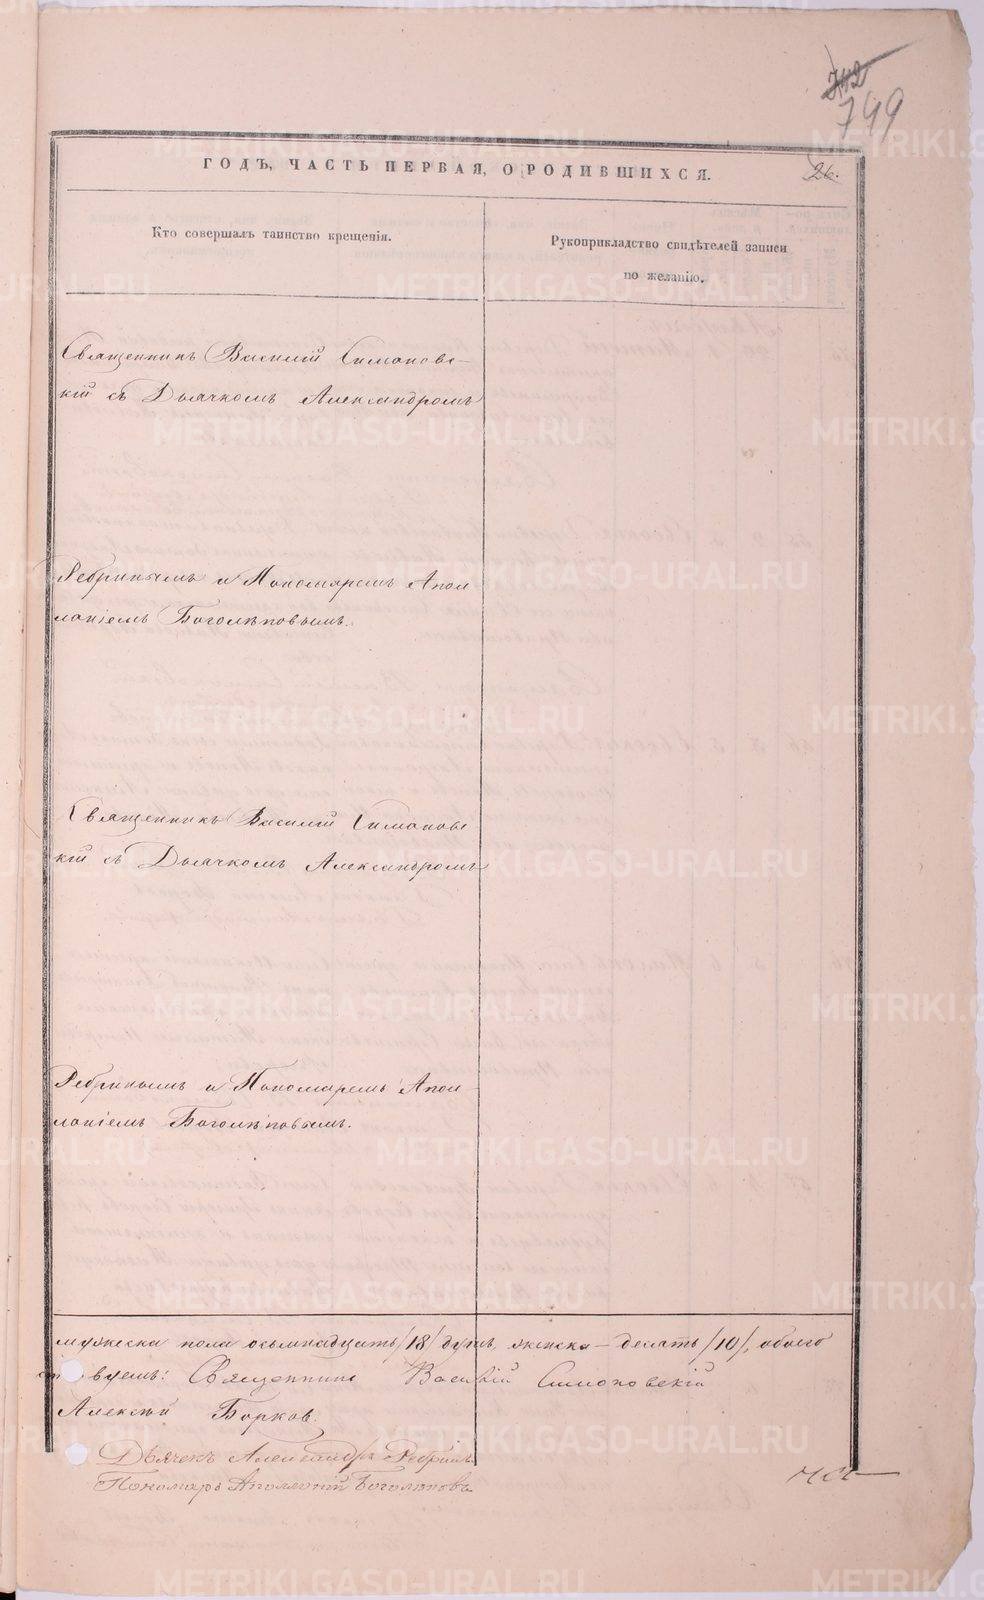 742
799
ГОДЪ, ЧАСТЬ ПЕРВАЯ, О РОДИВШИХСЯ.
26.
Кто совершалъ таинство крещенія.
Рукоприкладство свидѣтелей записи
по желанію.
Священникъ Василій Симановс-
кій съ Дьячкомъ Александромъ
Ребринымъ и Пономаремъ Апол-
лоніемъ Боголѣповымъ.
Священникъ Василій Симановс
кій съ Дьячкомъ Александромъ
Ребринымъ и Пономаремъ Апол-
лоніемъ Боголѣповымъ.
мужеска пола осьмнадцать /18/ душъ, женска - десять /10/, обоего
вуемъ: Священникъ Василій Симоновскій
Алексѣй Борков.
Дьячекъ Александръ Ребринъ
Пономарь Аполлоній Боголѣповъ
METRIKI.GASO-URAL.RU